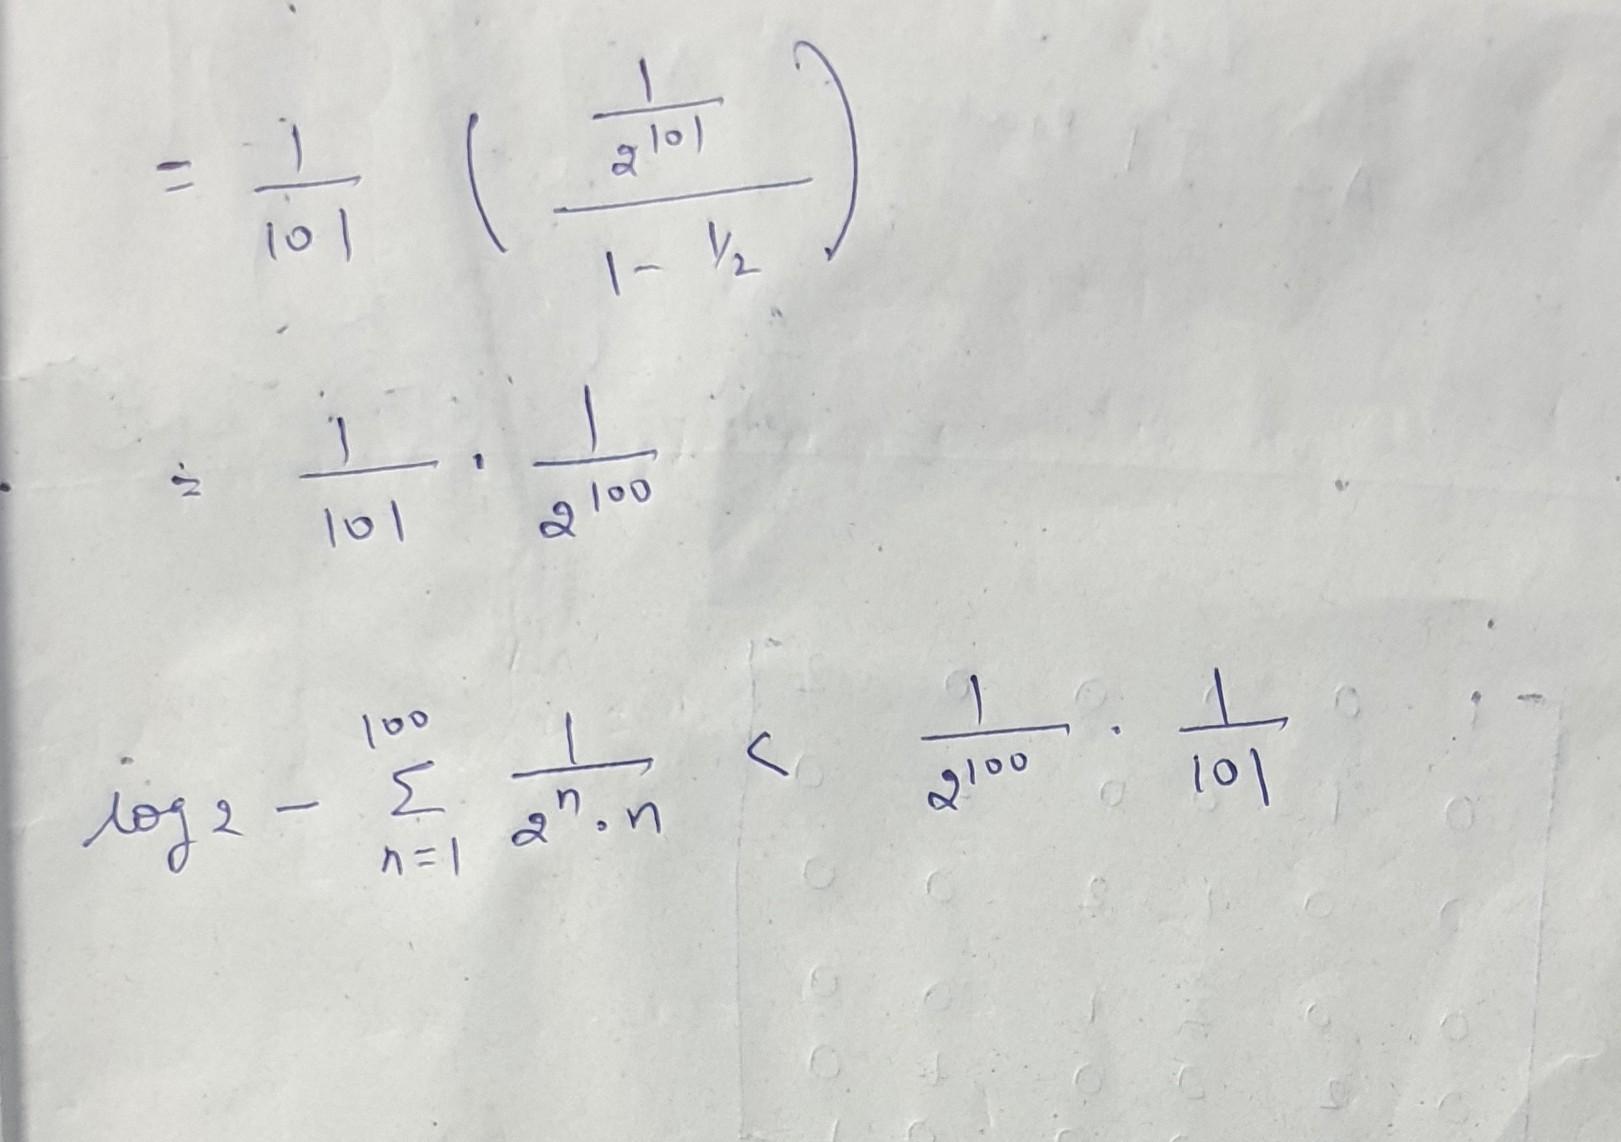 = 1/101 ( (1/2^101) / (1 - 1/2) )
= 1/101 · 1/2^100
log 2 - Σ_{n=1}^{100} 1/(2^n · n) < 1/2^100 · 1/101